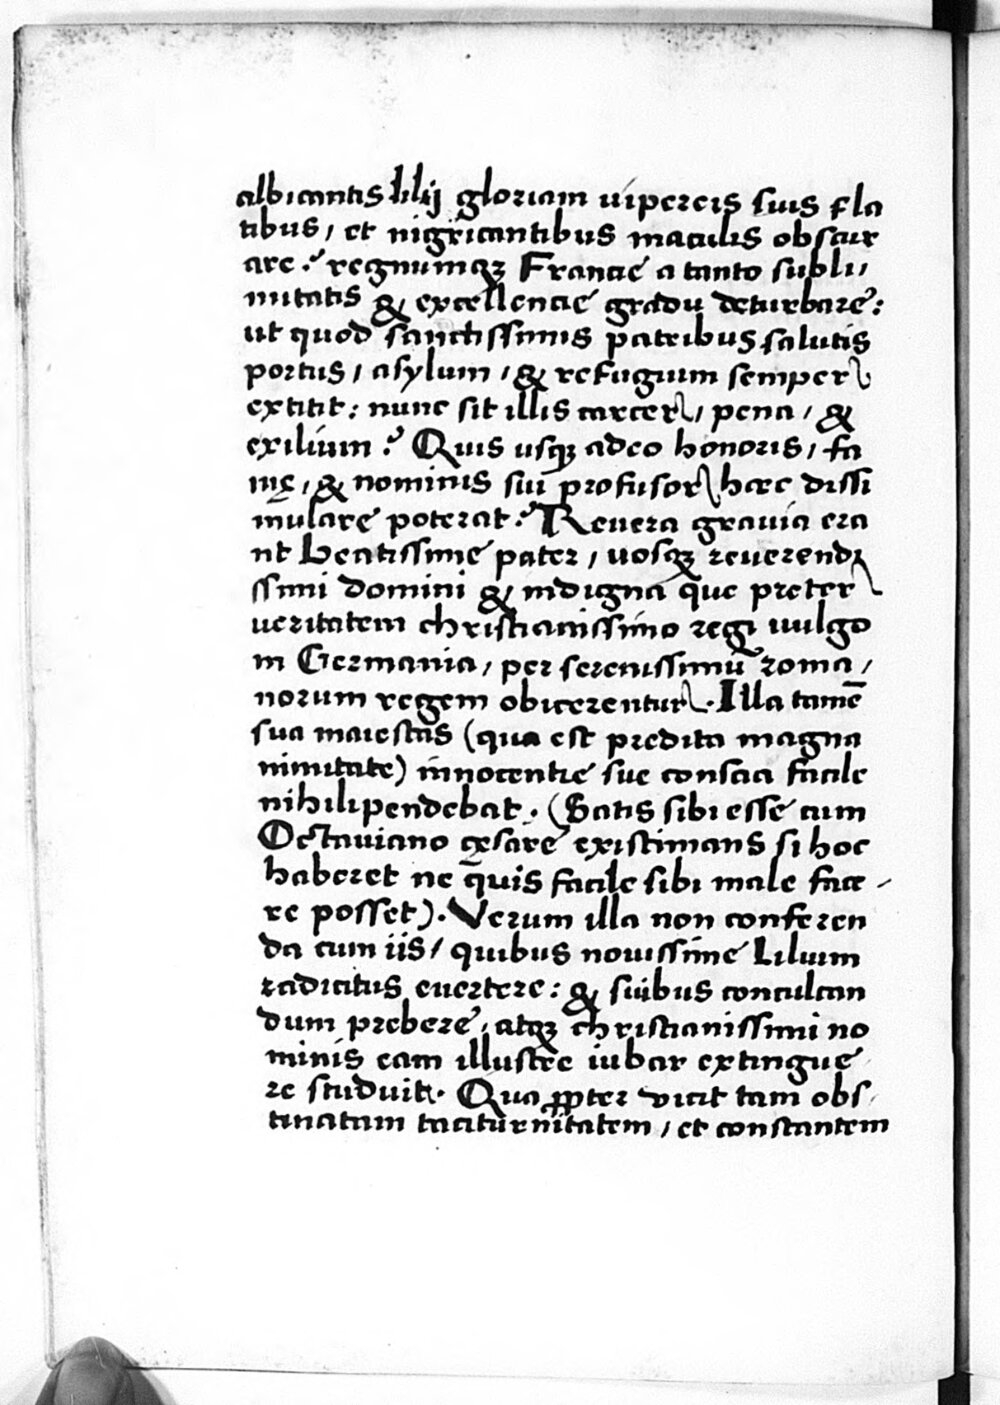 albicantis lilij gloriam uipereis suis fla
tibus, et nigricantibus maculis obscur
are? regnumqꝫ Francie a tanto subli,
mitatis & excellencie gradu deturbare:
ut quod sanctissimis patribus salutis
portus, asylum, & refugium semper
extitit: nunc sit illis carcer, pena, &
exilium? Quis usqꝫ adeo honoris, fa
mę, & nominis sui profusor hæc dissi
mulare poterat? Reuera grauia era
nt beatissime pater, uosqꝫ reuerendi
ssimi domini & indigna que preter
ueritatem christianissimo regi uulgo
in Germania, per serenissimū roma,
norum regem obicerentur. Illa tamē
sua maiestas (qua est predita magna
nimitate) innocentie sue conscia facile
nihilipendebat. (Satis sibi esse cum
Octauiano cęsare existimans si hoc
haberet ne q̄uis facile sibi male face-
re posset). Verum illa non conferen
da cum iis, quibus nouissime Lilium
radicitus euertere: & suibus conculcan
dum prebere, atqꝫ christianissimi no
minis eam illustre iubar extingue
re studuit. Qua ꝓpter vicit tam obs,
tinatam taciturnitatem, et constantem